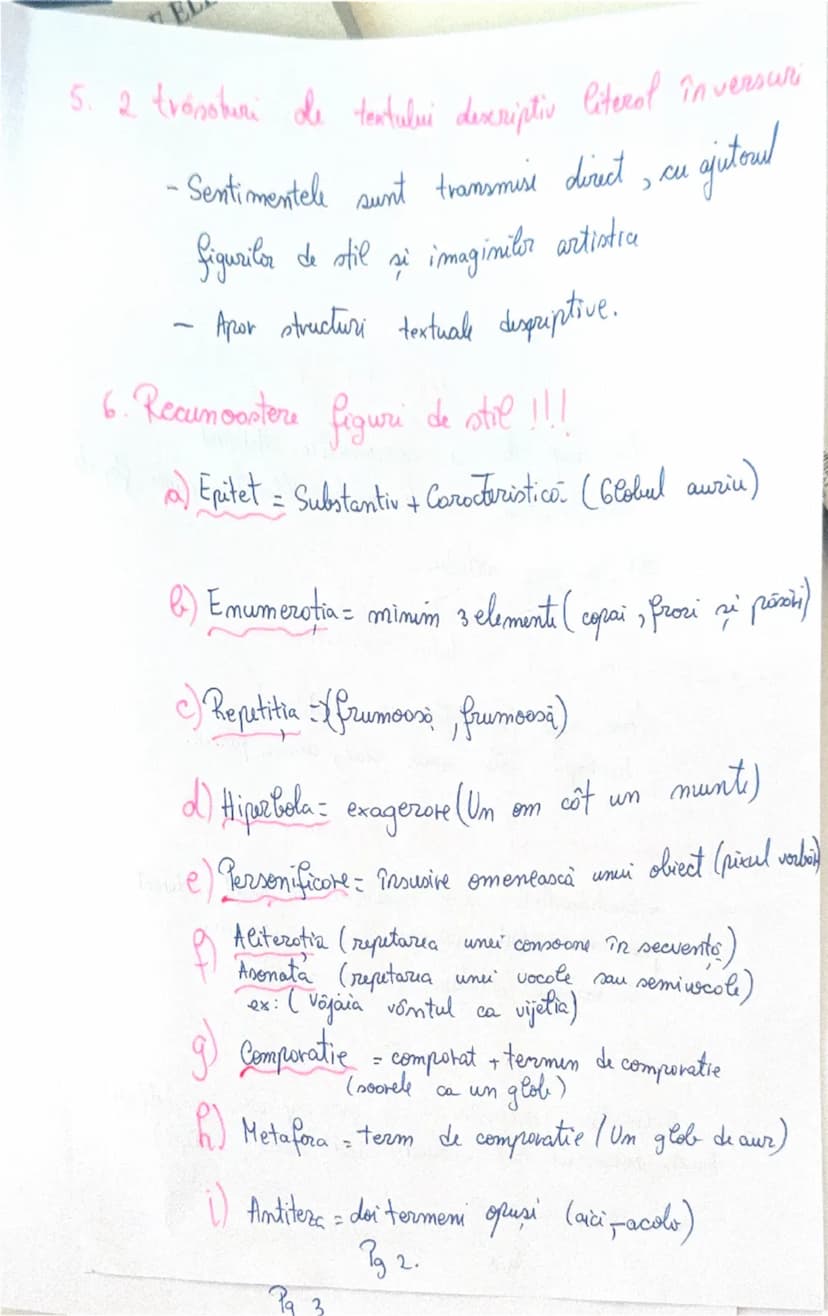 5. 2 trăsături de textului descriptiv literal în versuri
- Sentimentele sunt transmise direct, cu ajutorul
figurilor de stil și imaginilor artistice
- Apar structuri textuale descriptive.
6. Recunoastere figuri de stil !!!
a) Epitet = Substantiv + Caracteristică (Globul auriu)
b) Enumerația = minim 3 elemente (copai, frozi și păsări)
c) Repetiția = (frumoasă, frumoasă)
d) Hiperbola = exagerare (Un om cât un munte)
e) Personificare = însusire omenească unui obiect (pixul vorbăt)
f) Aliterația (repetarea unei consoane în secvență)
Asonață (repetarea unei vocale sau semivocale)
ex: (Vâjâia vântul ca vijelia)
g) Comporatie = comparat + termen de comparatie
(soarele ca un glob)
h) Metafora = term de comparatie (Un glob de aur)
i) Antiteza = doi termeni opuși (aici, -acolo)
Pg 2.
Pg 3